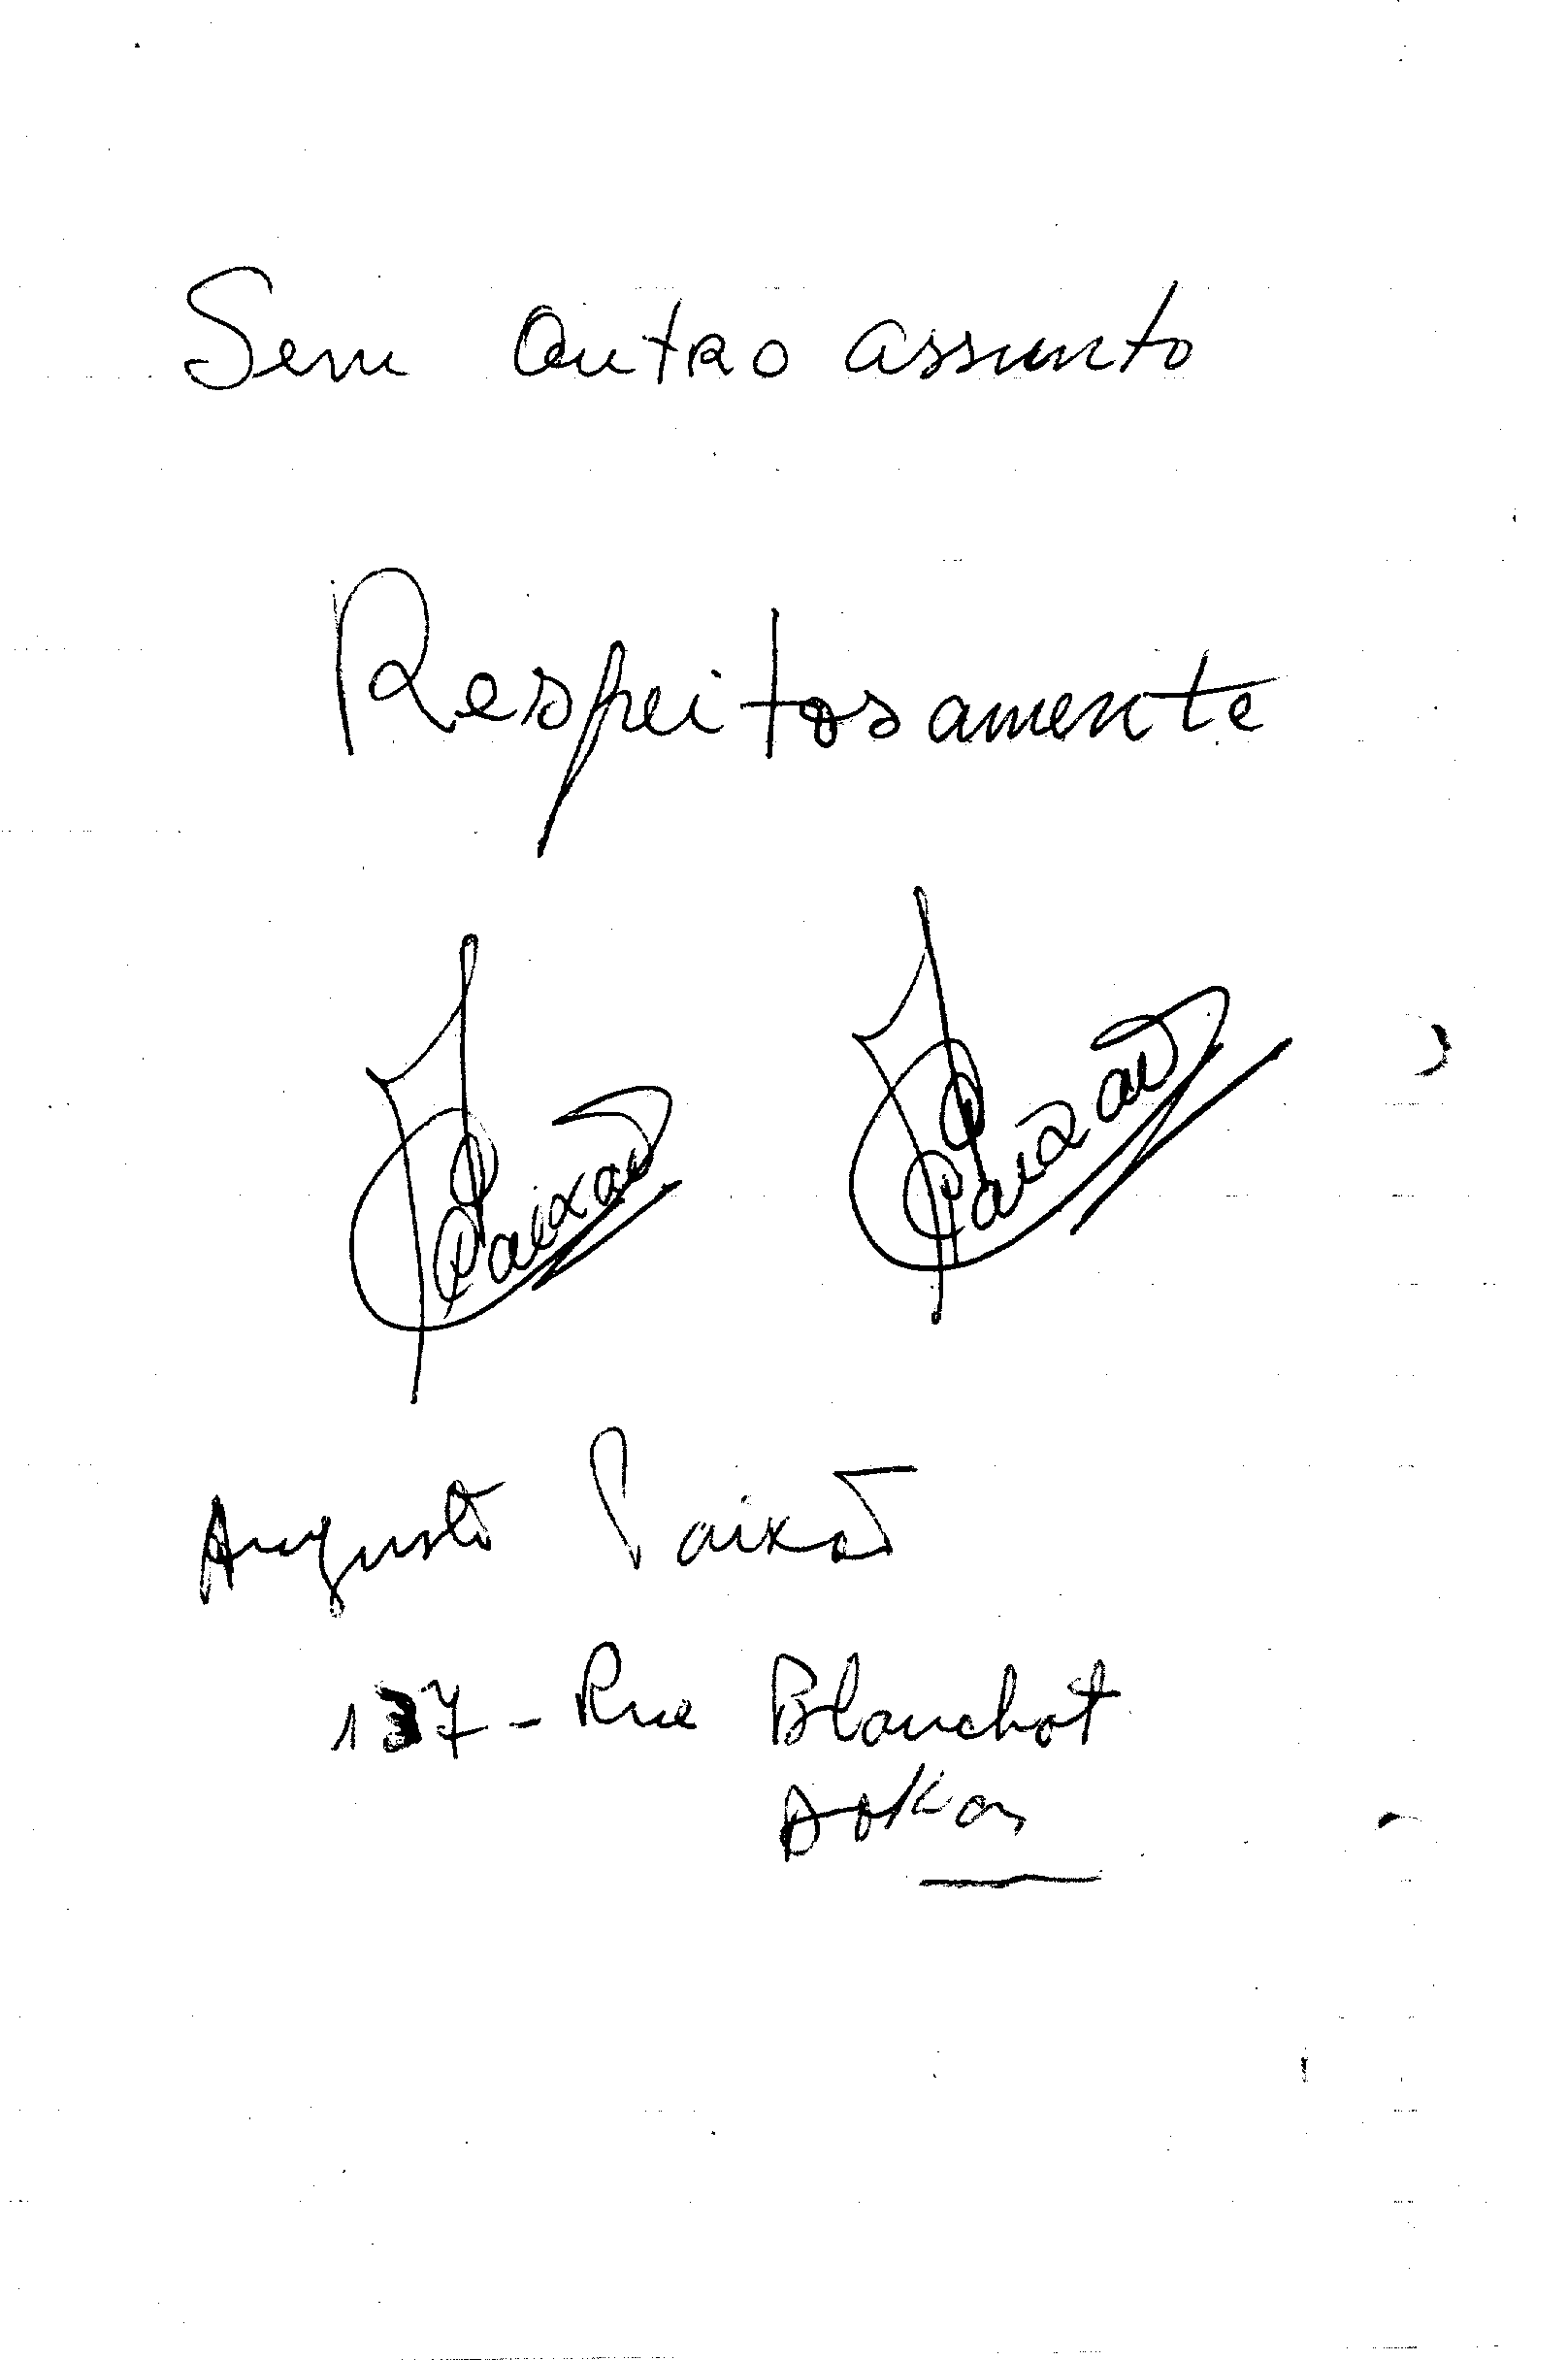 Sem outro assunto
Respeitosamente
Paixão Paixão
Augusto Paixão
137 - Rue Blanchot
Dakar